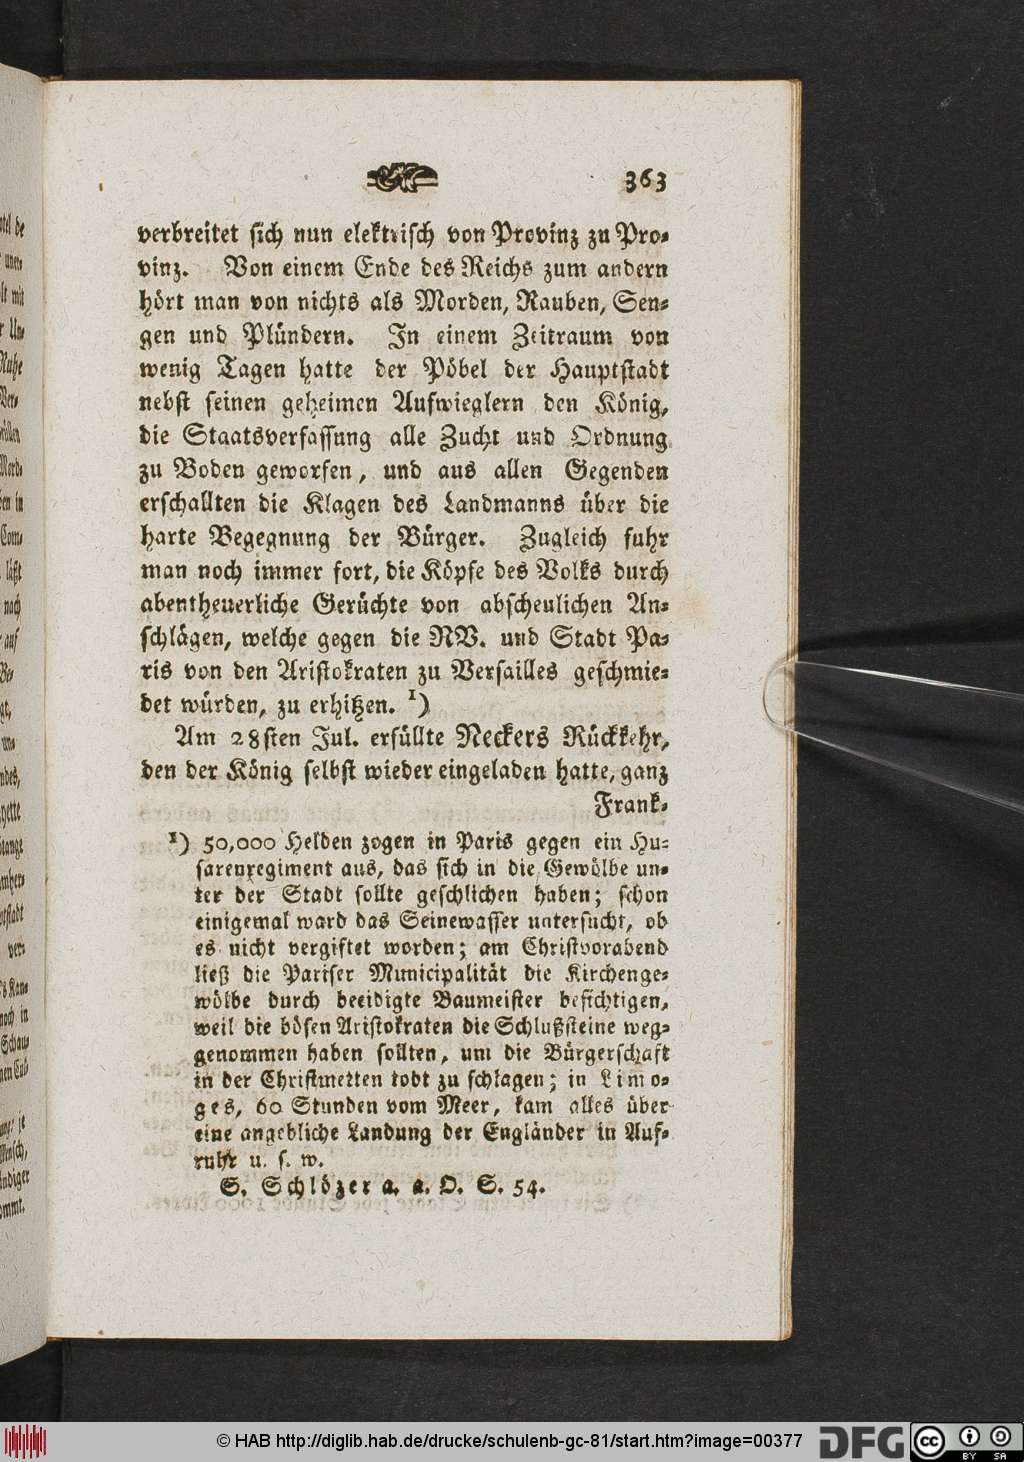 363
verbreitet sich nun elektrisch von Provinz zu Pro-
vinz. Von einem Ende des Reichs zum andern
hört man von nichts als Morden, Rauben, Sen-
gen und Plündern. In einem Zeitraum von
wenig Tagen hatte der Pöbel der Hauptstadt
nebst seinen geheimen Aufwieglern den König,
die Staatsverfassung alle Zucht und Ordnung
zu Boden geworfen, und aus allen Gegenden
erschallten die Klagen des Landmanns über die
harte Begegnung der Bürger. Zugleich fuhr
man noch immer fort, die Köpfe des Volks durch
abentheuerliche Gerüchte von abscheulichen An-
schlägen, welche gegen die NV. und Stadt Pa-
ris von den Aristokraten zu Versailles geschmie-
det würden, zu erhitzen. 1)
Am 28sten Jul. erfüllte Neckers Rückkehr,
den der König selbst wieder eingeladen hatte, ganz
Frank-
1) 50,000 Helden zogen in Paris gegen ein Hu-
sarenregiment aus, das sich in die Gewölbe un-
ter der Stadt sollte geschlichen haben; schon
einigemal ward das Seinewasser untersucht, ob
es nicht vergiftet worden; am Christvorabend
ließ die Pariser Municipalität die Kirchenge-
wölbe durch beeidigte Baumeister besichtigen,
weil die bösen Aristokraten die Schlußsteine weg-
genommen haben sollten, um die Bürgerschaft
in der Christmetten todt zu schlagen; in Limo-
ges, 60 Stunden vom Meer, kam alles über
eine angebliche Landung der Engländer in Auf-
ruhr u. s. w.
S. Schlözer a. a. O. S. 54.
© HAB http://diglib.hab.de/drucke/schulenb-gc-81/start.htm?image=00377
DFG
cc BY SA